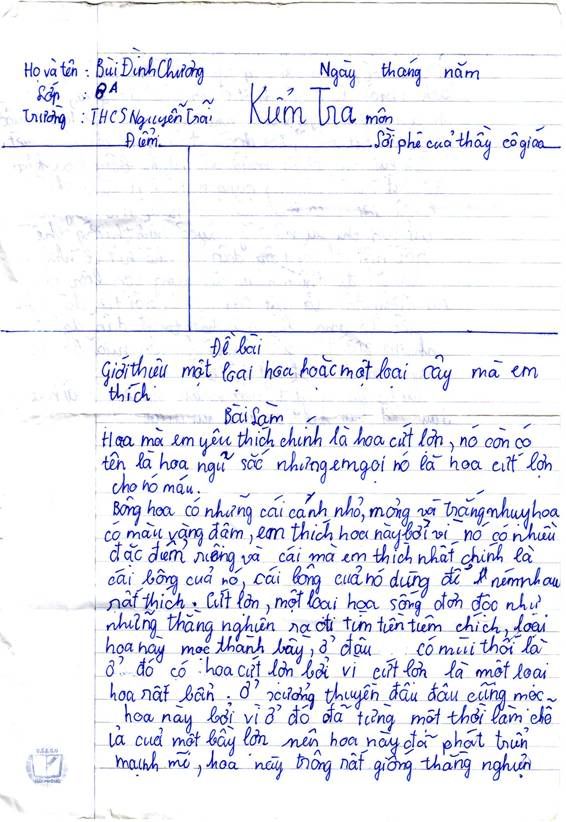 Họ và tên : Bùi Đình Chương
Ngày tháng năm
Lớp : 8A
Trường : THCS Nguyễn Trãi
Kiểm Tra môn
Điểm
Lời phê cuả thầy cô giáo
Đề bài
Giới thiêu một loai hoa hoặc một loai cây mà em
thích
Bài Làm
Hoa mà em yêu thích chính là hoa cứt lơn, nó còn có
tên là hoa ngũ sắc nhưng em goi nó là hoa cứt lợn
cho nó máu.
Bông hoa có những cái cánh nhỏ, mỏng và trắng nhuy hoa
có màu vàng đâm, em thích hoa này bởi vì nó có nhiều
đặc điểm riêng và cái mà em thích nhất chính là
cái bông cuả nó, cái bông cuả nó dùng để ném nhau
rất thích. Cứt lơn, một loại hoa sống đơn đọc như
những thăng nghiên ra đi tìm tiên tiêm chích, loai
hoa này moc thành bầy, ở đâu có mùi thối là
ở đó có hoa cứt lơn bởi vì cứt lơn là một loai
hoa rất bẩn. Ở xưởng thuyền đâu đâu cũng moc
hoa này bởi vì ở đó đã từng một thời làm chỗ
ỉa cuả một bầy lơn nên hoa này đã phát triển
mạnh mẽ, hoa này trông rất giống thăng nghiện